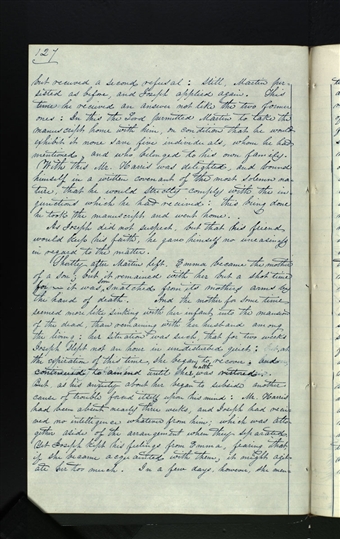 127
but received a second refusal: Still, Martin per-
sisted as before, and Joseph applied again. This
time he received an answer not like the two former
ones: In this the Lord permitted Martin to take the
manuscript home with him, on condition that he would
exhibit it none save five individuals, whom he had
mentioned, and who belonged to his own family.
With this Mr. Harris was delighted, and bound
himself in a written covenant of the most solemn na-
ture, that he would strictly comply with the in-
junctions which he had received: this being done
he took the manuscript and went home.
As Joseph did not suspect, but that his friend
would keep his faith, he gave himself no uneasiness
in regard to the matter.
Shortly after Martin left, Emma became the mother
of a son; but it remained with her but a short time
for it was snatched from its mothers arms by
the hand of death. And the mother for some time,
seemed more like sinking with her infant into the mansion
of the dead, than remaining with her husband among
the living: her situation was such, that for two weeks
Joseph slept not an hour in undisturbed quiet: At
the expiration of this time, she began to recover; and
continued to amend until her health was restored.
But as his anxiety about her began to subside another
cause of trouble forced itself upon his mind: Mr. Harris
had been absent nearly three weeks, and Joseph had recei-
ved no inteligence whatever from him; which was alto-
gether aside of the arrangement when they separated.
But Joseph kept his feelings from Emma, fearing that
if she became acquainted with them, it might agit-
ate her too much. In a few days, however, she men-